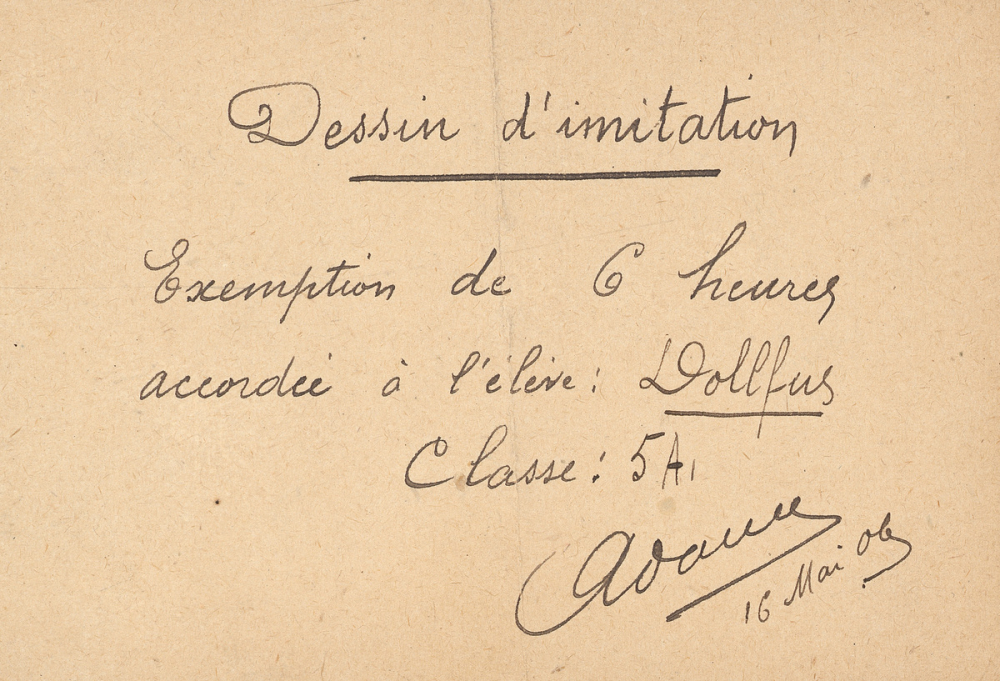 Dessin d'imitation
Exemption de 6 heures
accordée à l'élève : Dollfus
Classe : 5 A1
16 Mai 06